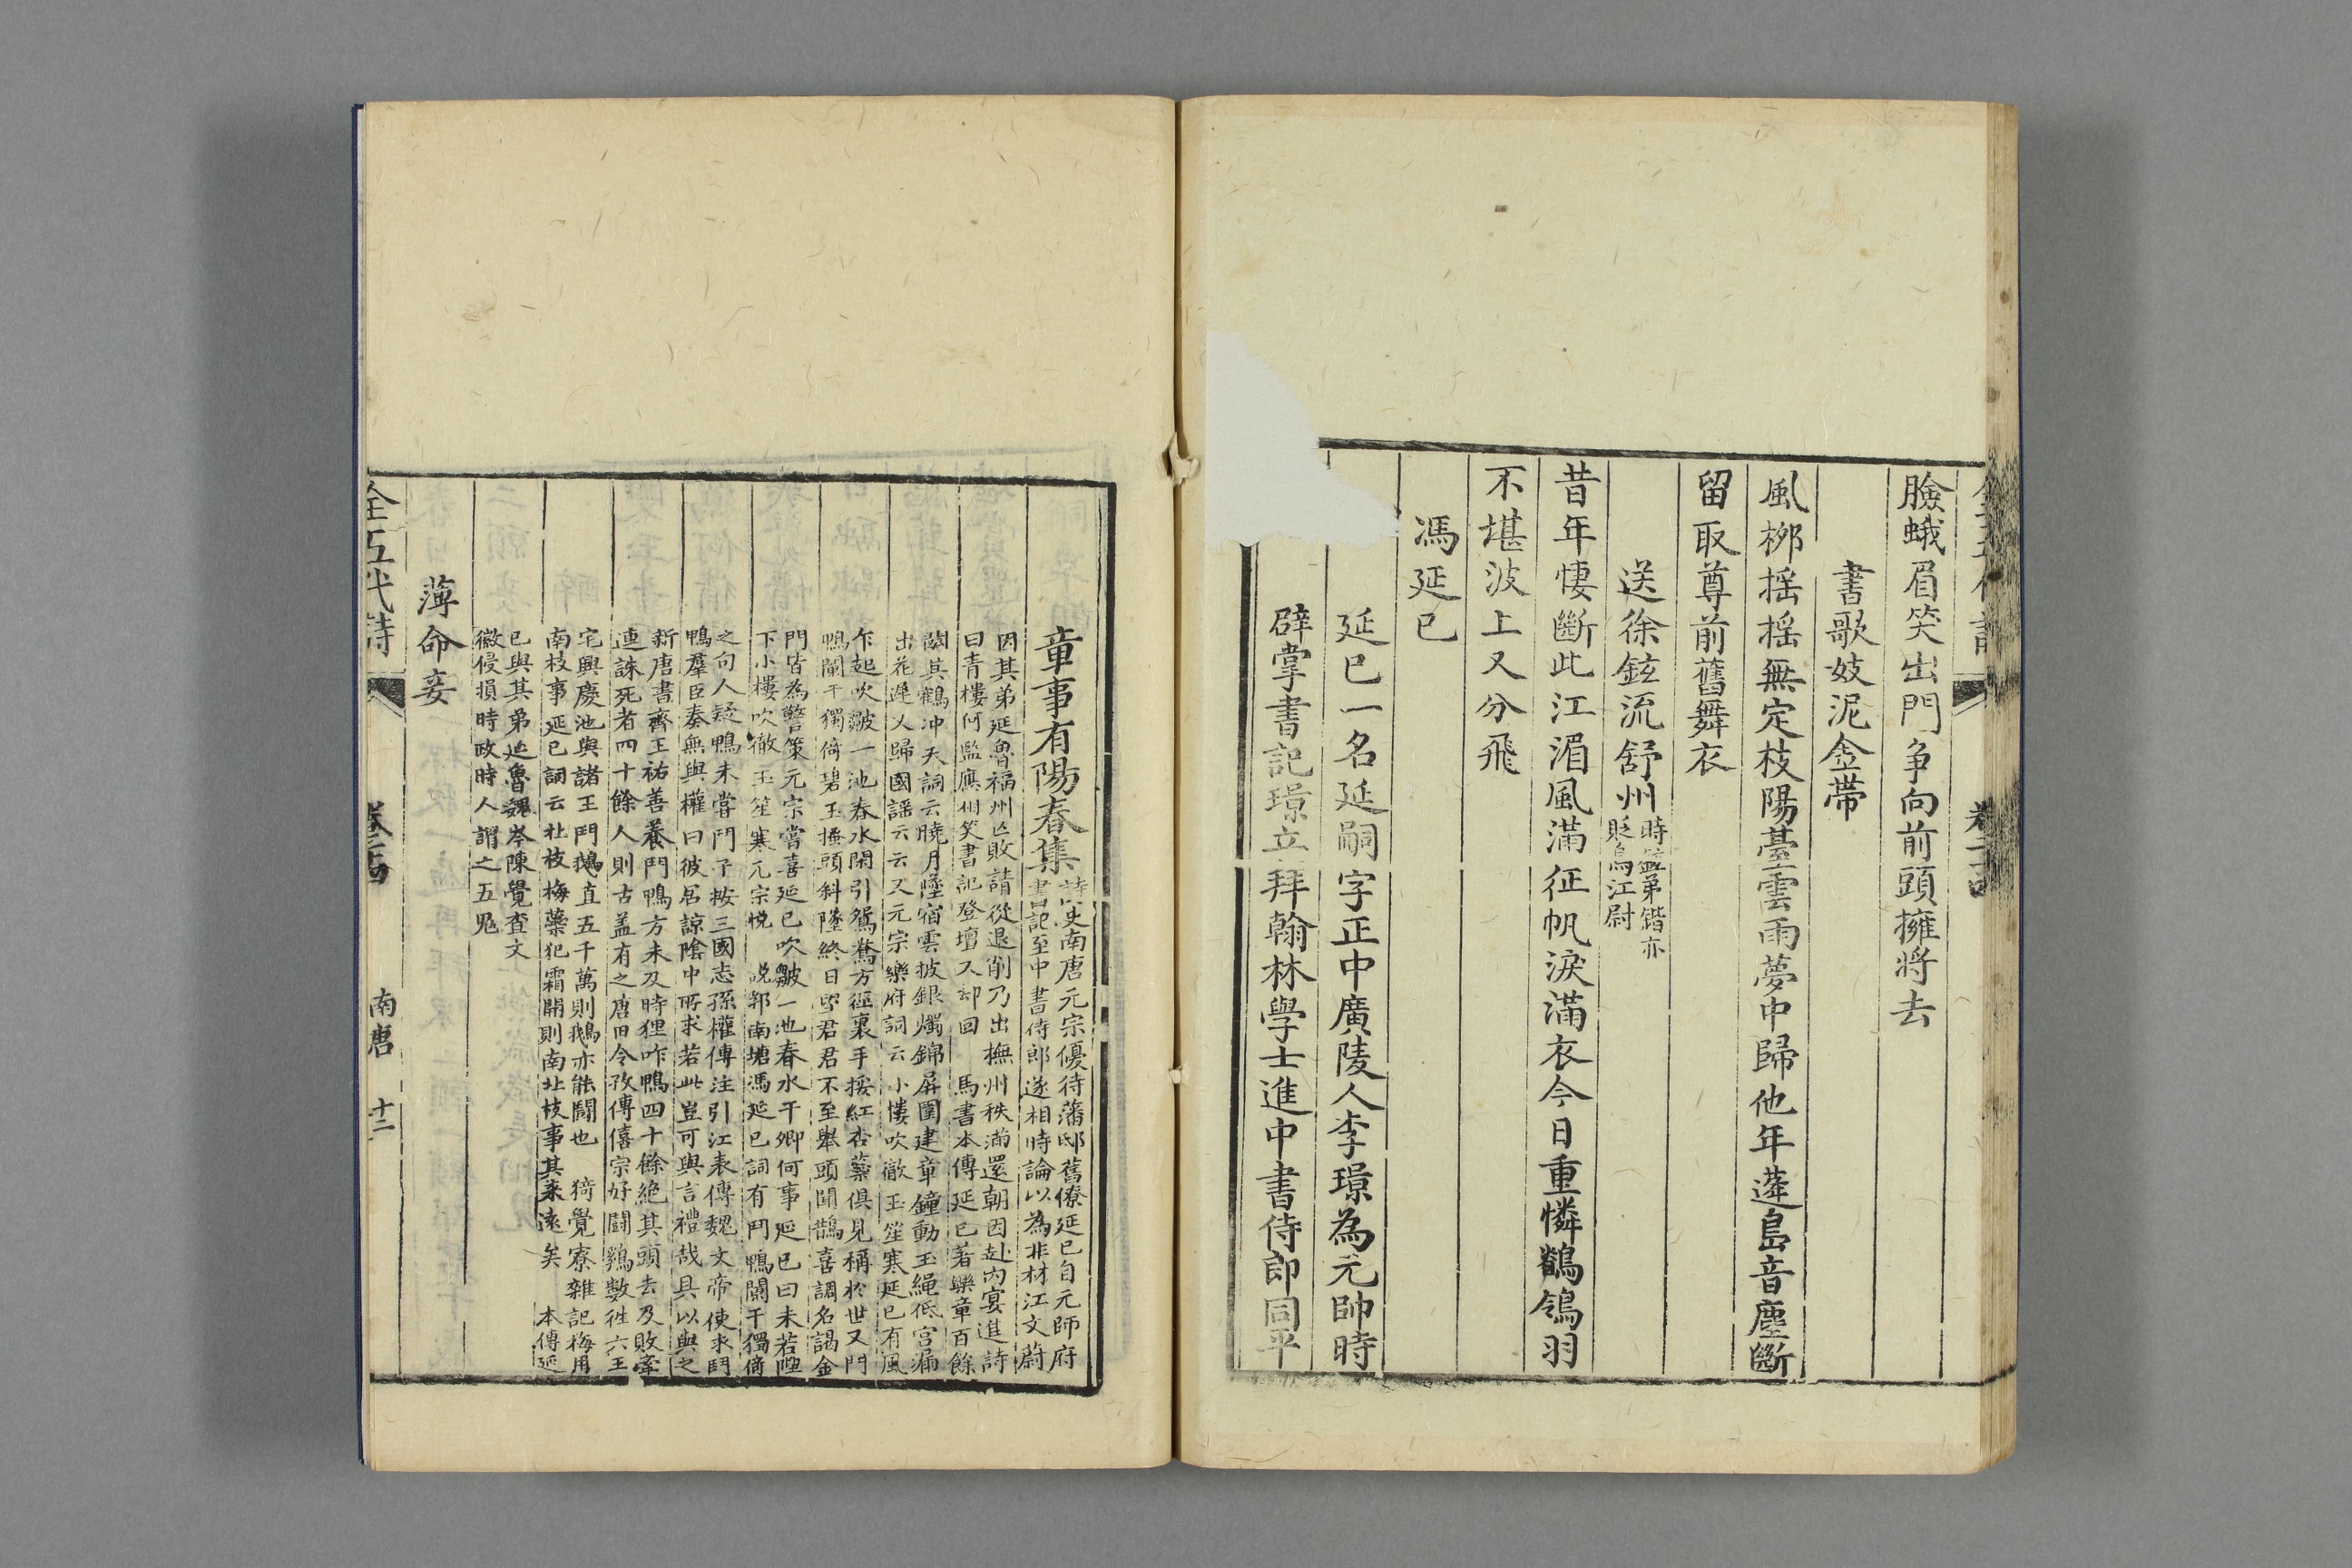 臉蛾眉笑出門争向前頭擁將去
書歌妓泥金帶
風栁揺揺無定枝陽臺雲雨夢中歸他年蓬島音塵斷
留取尊前舊舞衣
送徐鉉流舒州時鉉弟鍇亦
貶烏江尉
昔年悽斷此江湄風滿征帆淚滿衣今日重憐鶺鴒羽
不堪波上又分飛
馮延巳
延巳一名延嗣字正中廣陵人李璟為元帥時
辟掌書記璟立拜翰林學士進中書侍郎同平
章事有陽春集
詩史南唐元宗優待藩邸舊僚延巳自元帥府
書記至中書侍郎遂相時論以為非材江文蔚
因其弟延魯福州亡敗請從退削乃出撫州秩滿還朝因赴内宴進詩
曰青樓何監應州笑書記登壇又却回 馬書本傳延巳著樂章百餘
闋其鶴冲天詞云曉月墜宿雲披銀燭錦屏圍建章鐘動玉繩低宫漏
出花遲又歸國謡云云又元宗樂府詞云小樓吹徹玉笙寒延巳有風
乍起吹皺一池春水閑引鴛鴦方徑裏手挼紅杏蘂俱見稱於世又鬥
鴨闌干獨倚碧玉搔頭斜墜終日望君君不至舉頭聞鵲喜調名謁金
門皆為警策元宗嘗喜延巳吹皺一池春水干卿何事延巳曰未若陛
下小樓吹徹玉笙寒元宗悅 說郛南塘馮延巳詞有鬥鴨闌干獨倚
之句人疑鴨未嘗鬥予按三國志孫權傳注引江表傳魏文帝使求鬥
鴨羣臣奏無與權曰彼居諒陰中所求若此豈可與言禮哉具以與之
新唐書齊王祐善養鬥鴨方未反時狸咋鴨四十餘絶其頭去及敗牽
連誅死者四十餘人則古盖有之唐田令孜傳僖宗好鬪鵝數徃六王
宅興慶池與諸王鬥鵝鵝直五千萬則鵝亦能鬪也 猗覺寮雜記梅用
南枝事延巳詞云北枝梅蘂犯霜開則南北枝事其来遠矣 本傳延
巳與其弟延魯魏岑陳覺查文
徽侵損時政時人謂之五鬼
薄命妾
全五代詩 卷二十四 南唐 十二